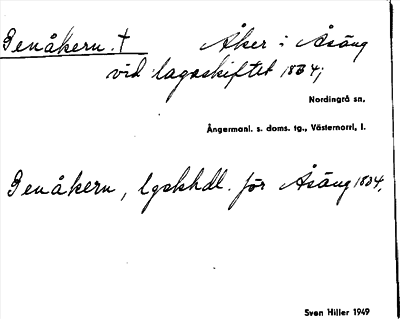 Genåkern. † Åker i Åsäng
vid lagaskiftet 1834;
Nordingrå sn,
Ångermanl. s. doms. tg., Västernorrl, l.
Genåkern, lgskhdl. för Åsäng 1834.
Sven Hiller 1949